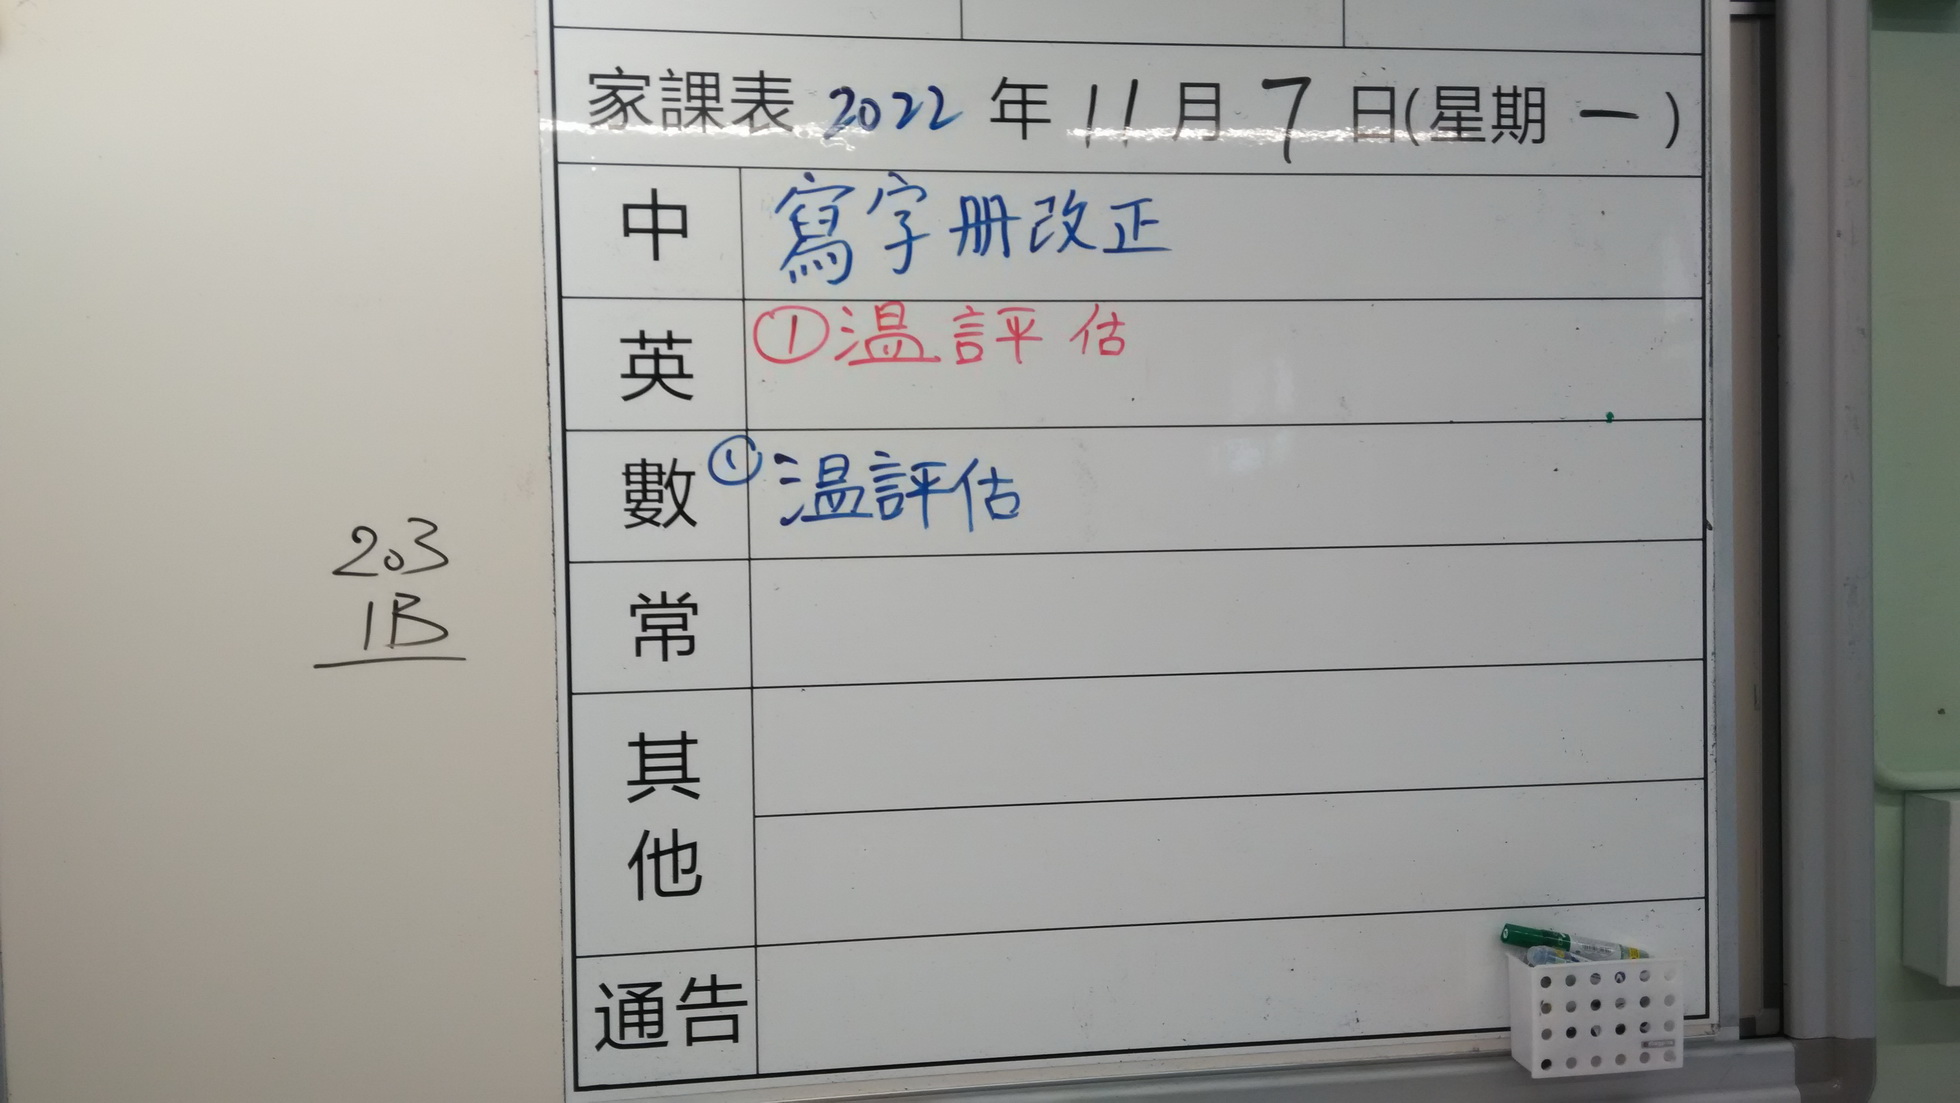 家課表 2022 年 11 月 7 日(星期 一 )
中 寫字册改正
英 ①温評估
數 ①温評估
常
其他
通告
203
1B